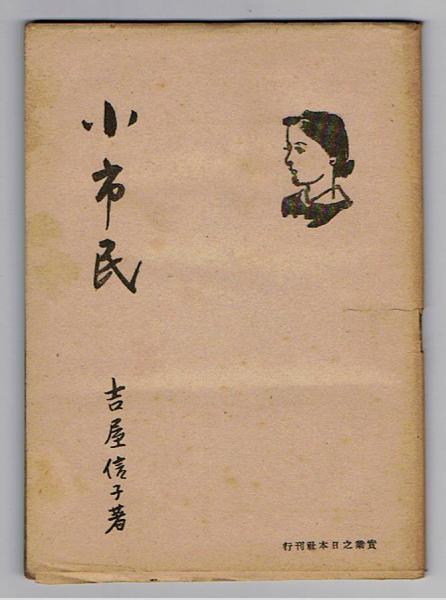 小市民
吉屋信子著
實業之日本社刊行